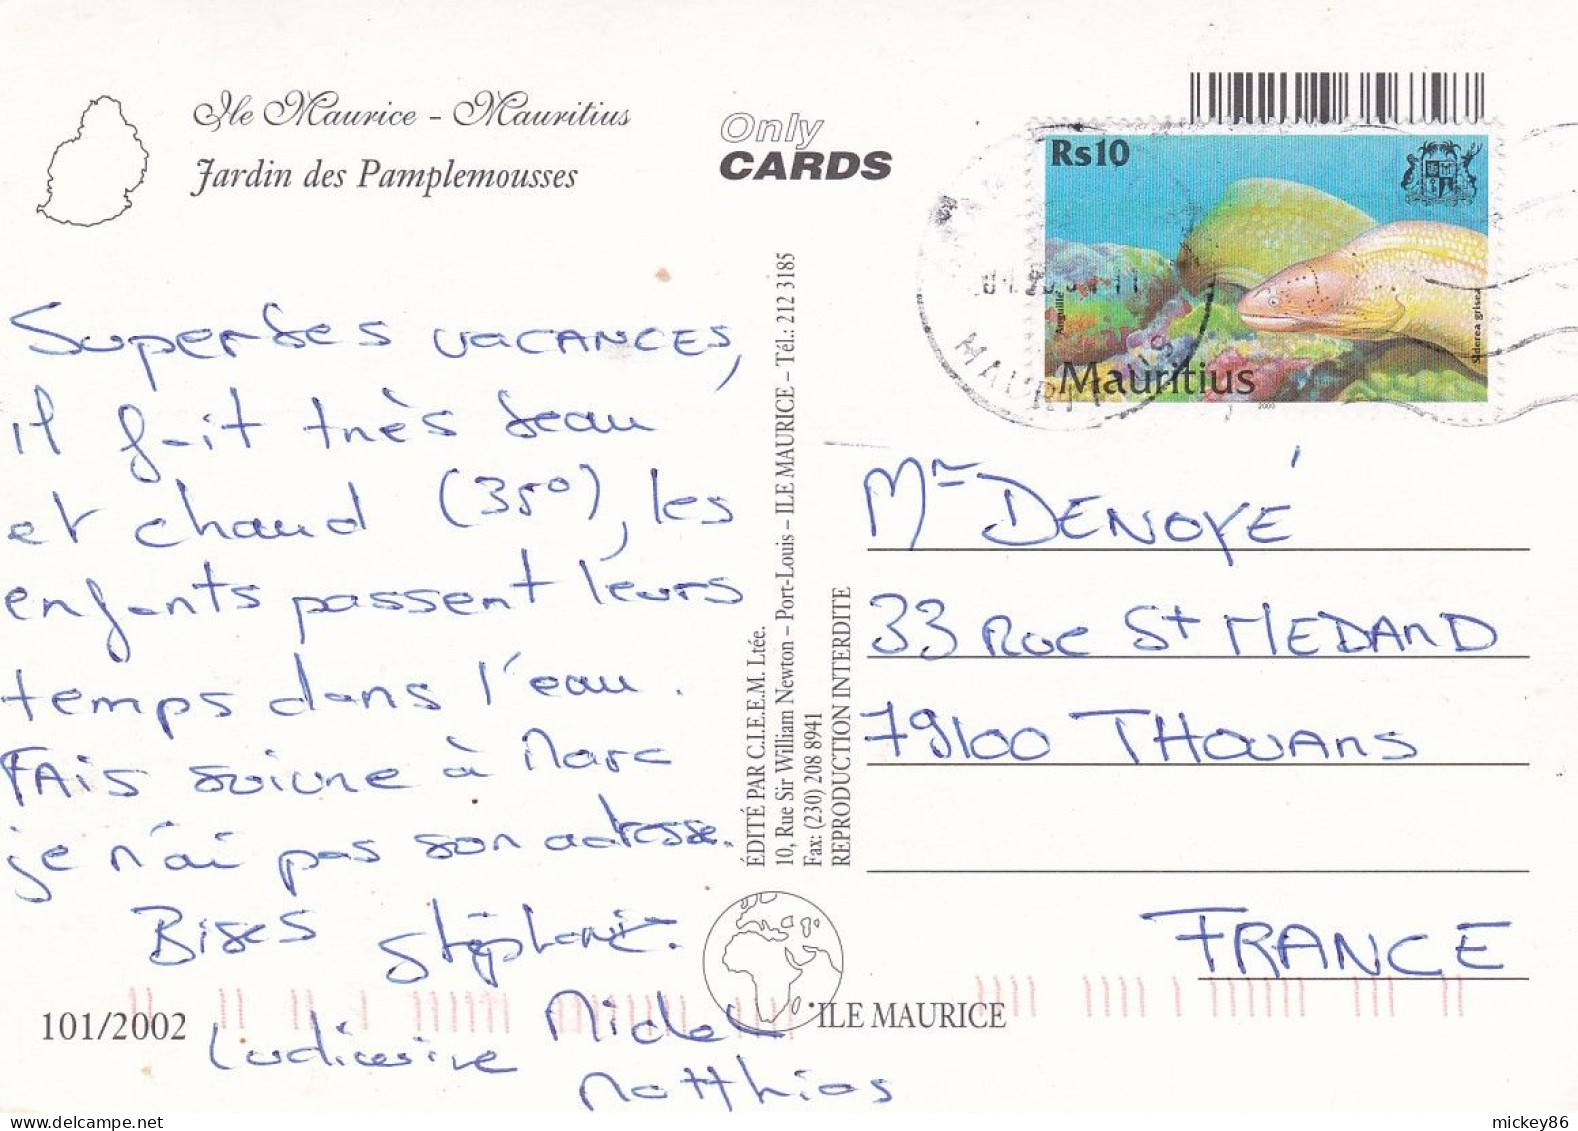 Ile Maurice - Mauritius
Jardin des Pamplemousses
Only
CARDS
Rs10
Anguille
Siderea grisea
Mauritius
2000
MAURITIUS
Superbes vacances,
il fait très beau
et chaud (35°), les
enfants passent leurs
temps dans l'eau.
FAis suivre à Marc
je n'ai pas son adresse.
Bises Stéphanie.
Michel
Ludiwine
Matthias
ÉDITÉ PAR C.I.E.E.M. Ltée.
10, Rue Sir William Newton – Port-Louis – ILE MAURICE – Tél.: 212 3185
Fax: (230) 208 8941
REPRODUCTION INTERDITE
Mr DENOYÉ
33 Rue St MEDARD
79100 THOUARS
FRANCE
101/2002
ILE MAURICE
delcampe.net
mickey86